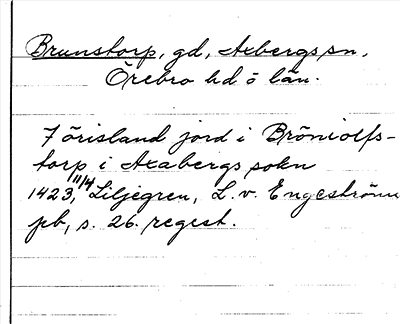 Brunstorp, gd, Axbergs sn,
Örebro hd o län.
7 örisland jord i Bröniolfs-
torp i Axabergs sokn
1423, 11/4 Liljegren, L. v. Engeströms
pb, s. 26. regest.